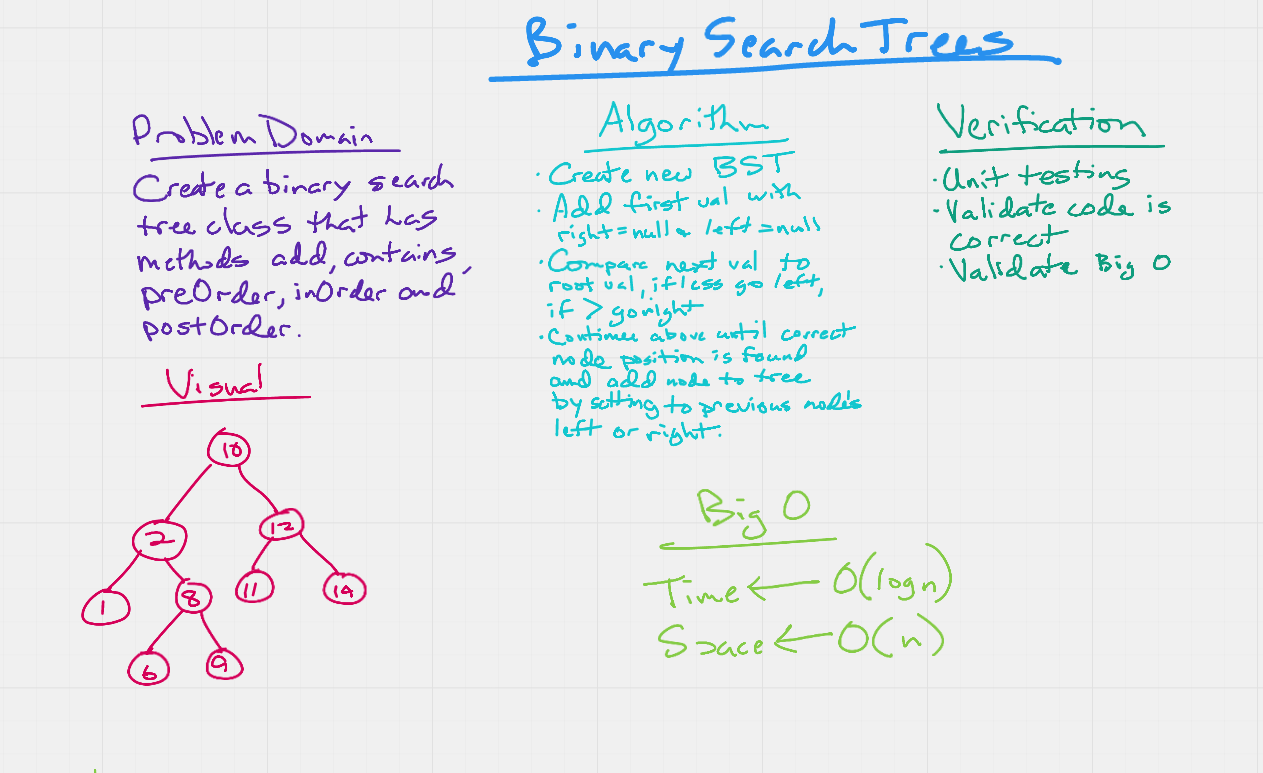 Binary Search Trees
Problem Domain
Create a binary search
tree class that has
methods add, contains,
preOrder, inOrder and
postOrder.
Visual
10
2
12
1
8
11
14
6
9
Algorithm
· Create new BST
· Add first val with
right = null & left = null
· Compare next val to
root val, if less go left,
if > go right
· Continue above until correct
node position is found
and add node to tree
by setting to previous node's
left or right.
Big O
Time ← O(log n)
Space ← O(n)
Verification
· Unit testing
· Validate code is
correct
· Validate Big O